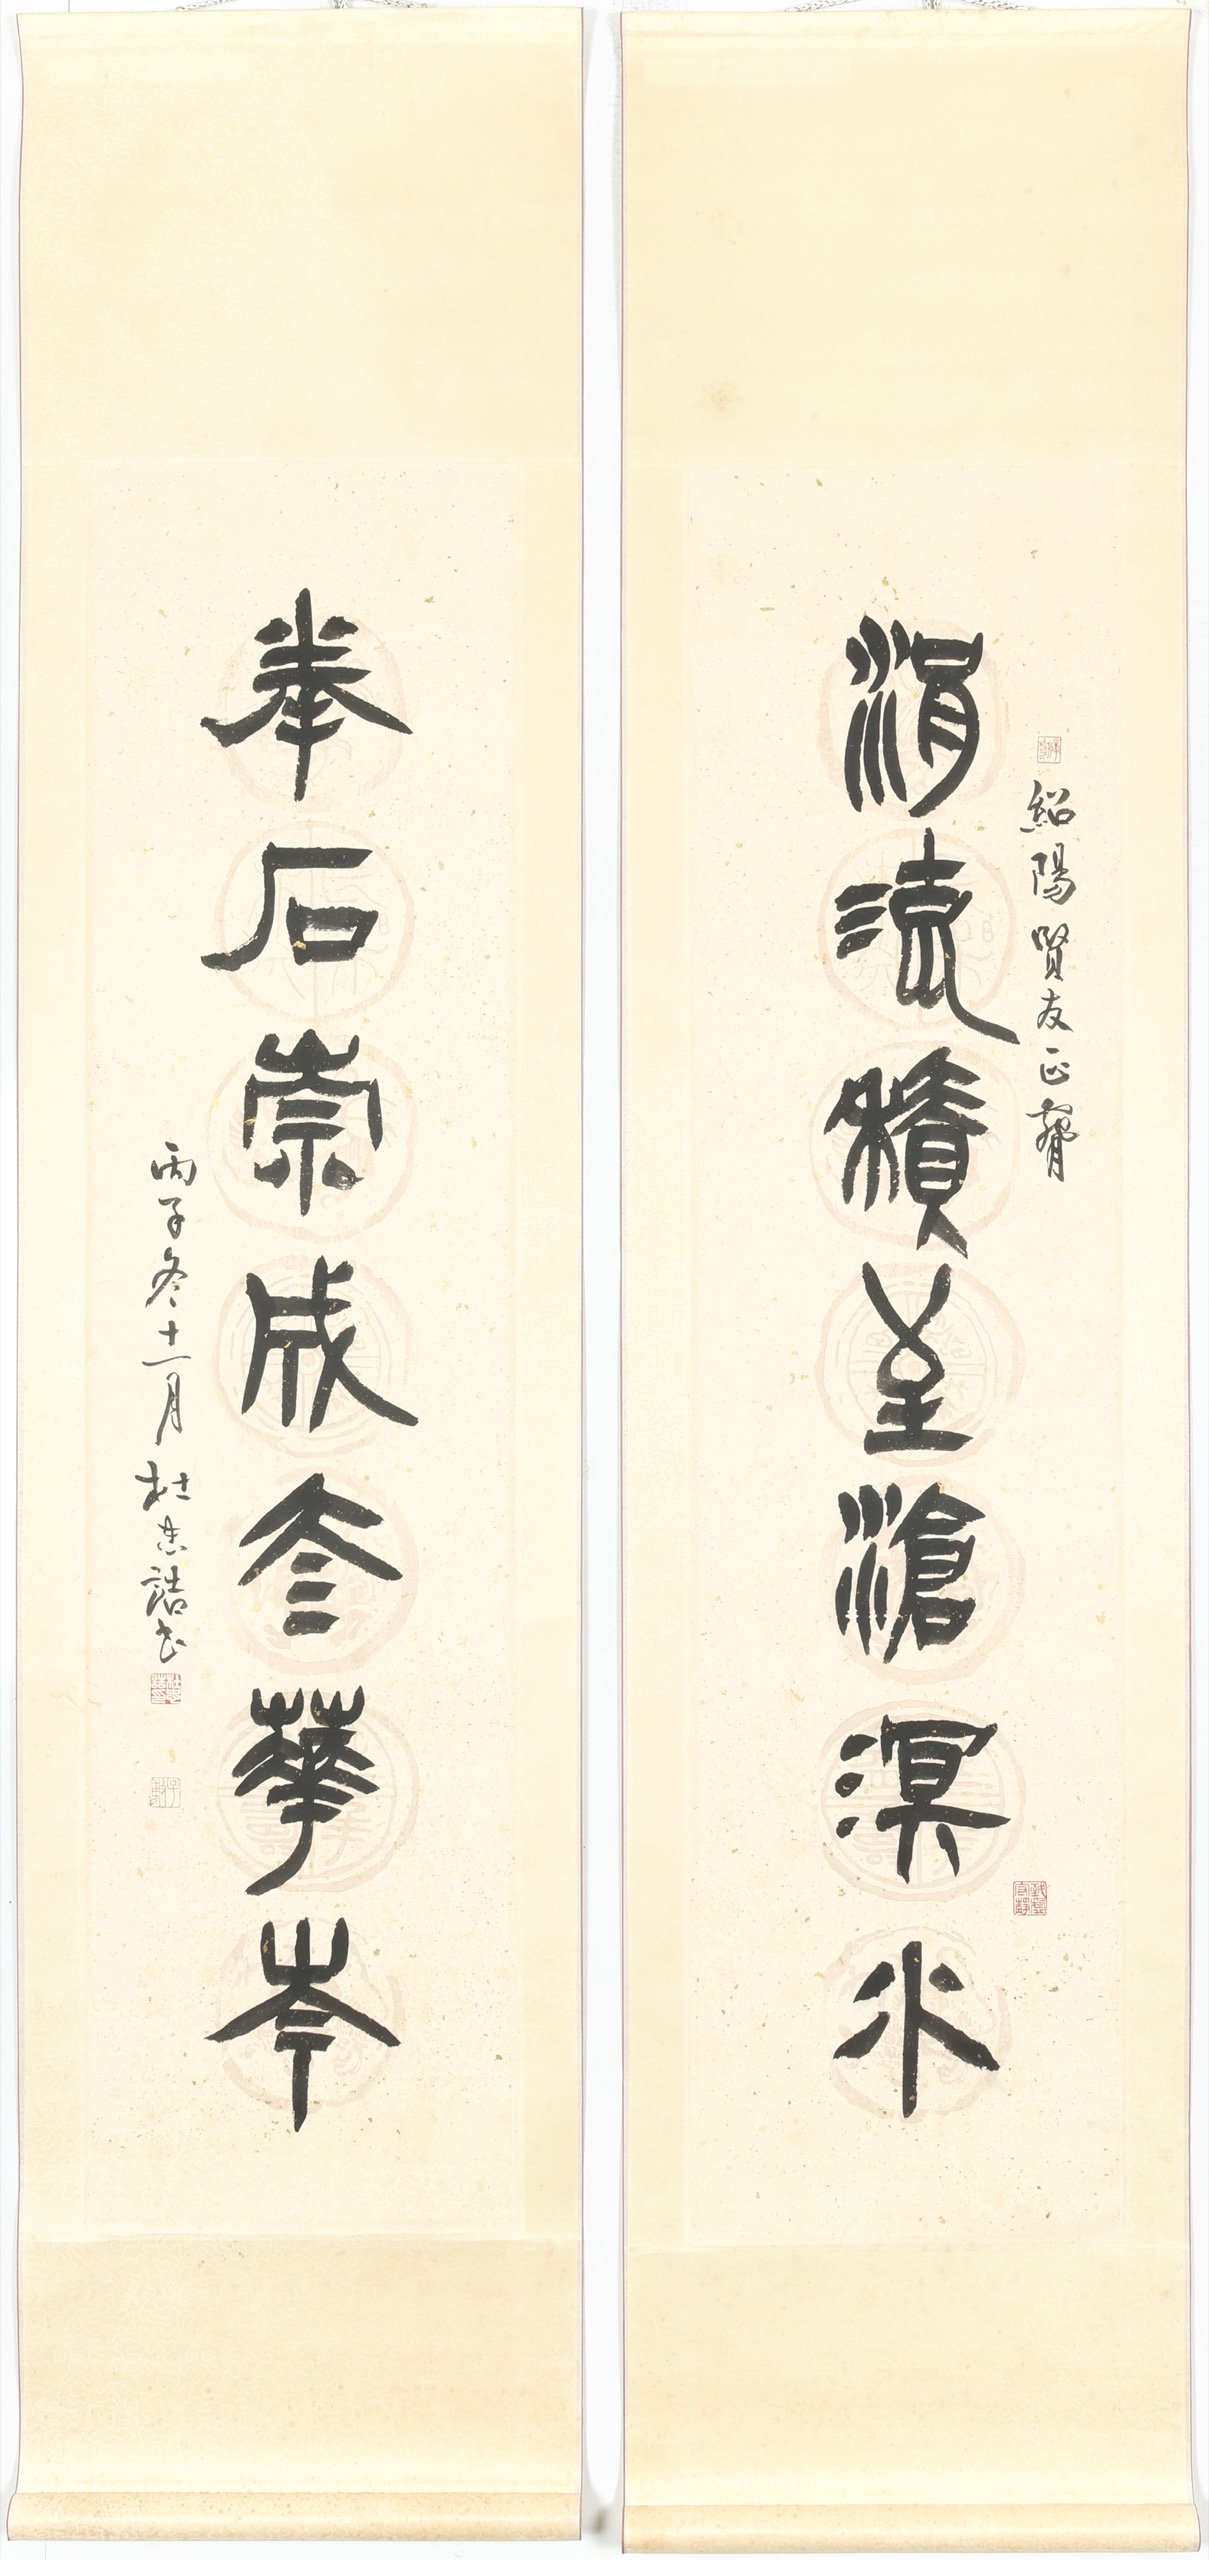 紹陽賢友正
涓流積至滄溟水
致虛守靜
拳石崇成泰華岑
丙子冬十一月杜忠誥書